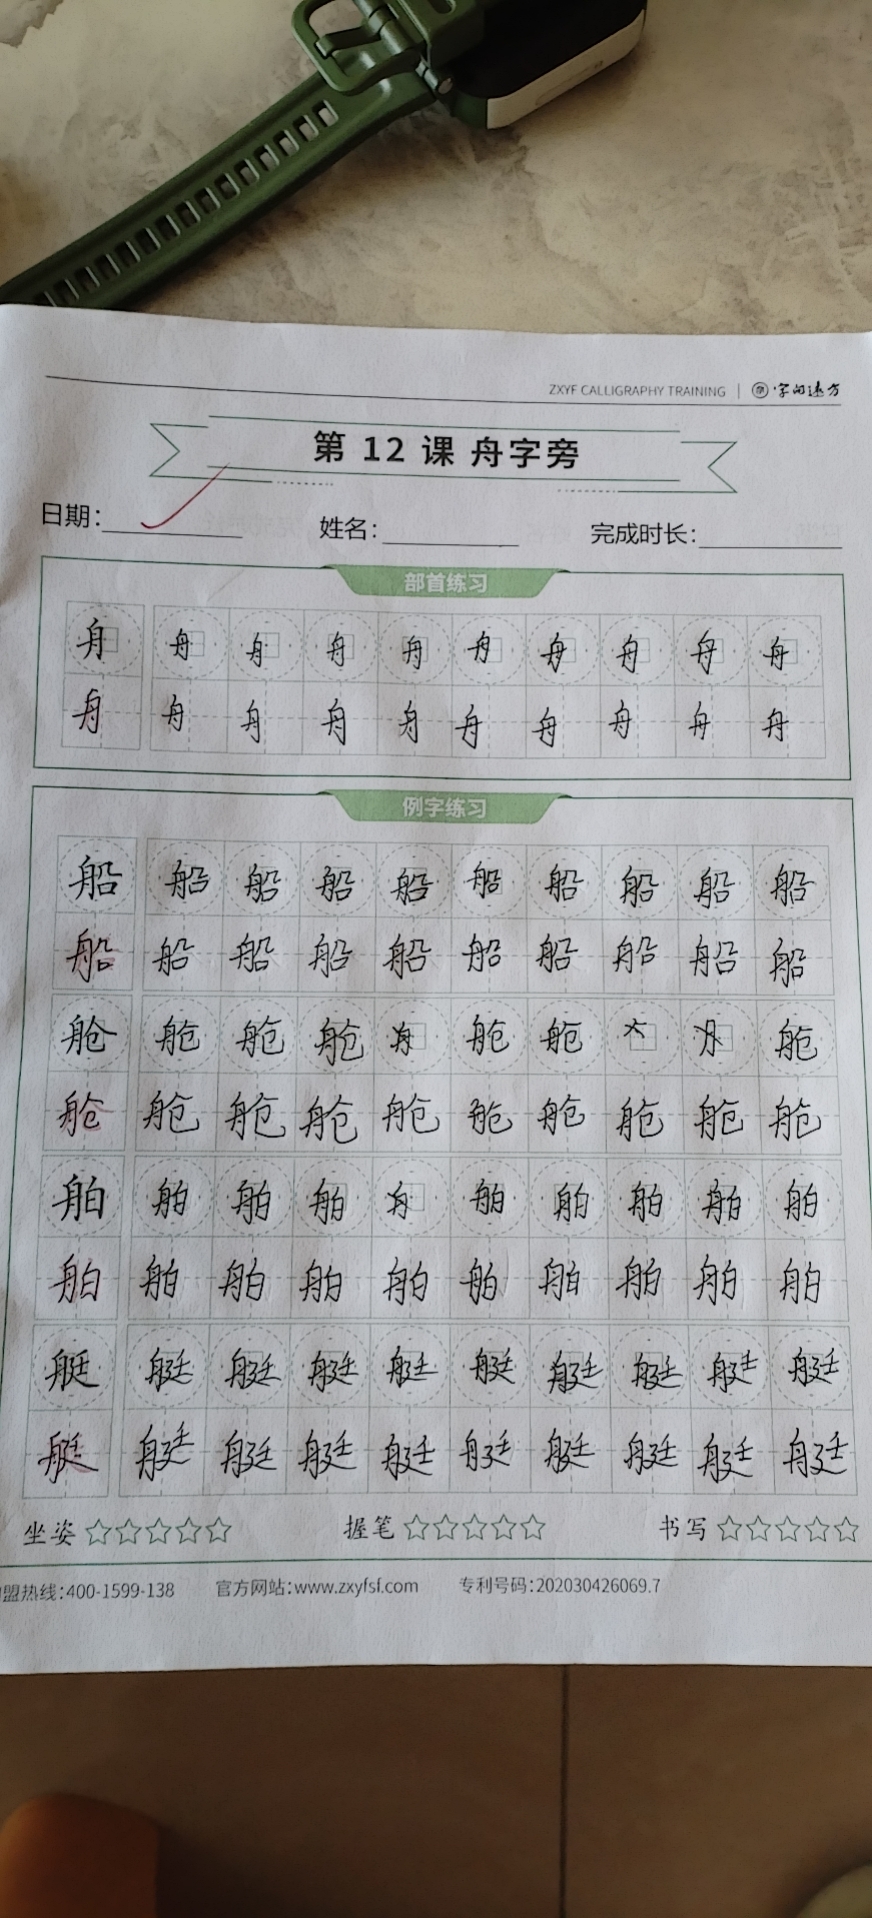 ZXYF CALLIGRAPHY TRAINING | 字的远方
第 12 课 舟字旁
日期: 姓名: 完成时长:
部首练习
舟 舟 舟 舟 舟 舟 舟 舟 舟 舟
舟 舟 舟 舟 舟 舟 舟 舟 舟 舟
例字练习
船 船 船 船 船 船 船 船 船 船
船 船 船 船 船 船 船 船 船 船
舱 舱 舱 舱 舟 舱 舱 舱
舱 舱 舱 舱 舱 舱 舱 舱 舱 舱
舶 舶 舶 舶 舟 舶 舶 舶 舶 舶
舶 舶 舶 舶 舶 舶 舶 舶 舶 舶
艇 艇 艇 艇 艇 艇 艇 艇 艇 艇
艇 艇 艇 艇 艇 艇 艇 艇 艇 艇
坐姿☆☆☆☆☆ 握笔☆☆☆☆☆ 书写☆☆☆☆☆
盟热线:400-1599-138 官方网站:www.zxyfsf.com 专利号码:202030426069.7